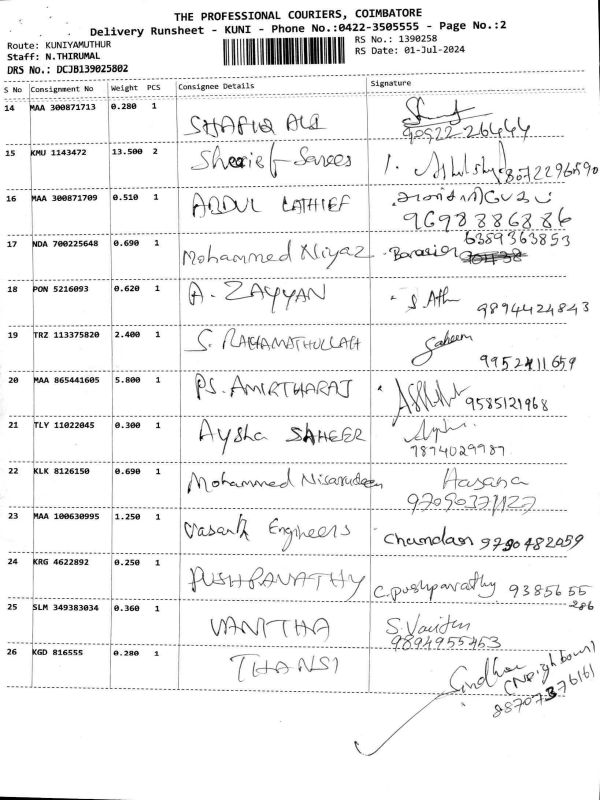 THE PROFESSIONAL COURIERS, COIMBATORE
Delivery Runsheet - KUNI - Phone No.:0422-3505555 - Page No.:2
Route: KUNIYAMUTHUR
RS No.: 1390258
Staff: N.THIRUMAL
RS Date: 01-Jul-2024
DRS No.: DCJB139025802
S No Consignment No Weight PCS Consignee Details Signature
14 MAA 300871713 0.280 1 SHAFIQ ALI
90922-26444
15 KMU 1143472 13.500 2 Sheerief Sarees 1. 8072296590
16 MAA 300871709 0.510 1 ABDUL LATHIEF
9698886886
17 NDA 700225648 0.690 1 Mohammed Niyaz 6389363853
18 PON 5216093 0.620 1 A. ZAYYAN S. Ath
9894424843
19 TRZ 113375820 2.400 1 S. RAHAMATHULLAH Saheem
9952411659
20 MAA 865441605 5.800 1 PS. AMIRTHARAJ 9585121968
21 TLY 11022045 0.300 1 Aysha SAHEER
7874029987
22 KLK 8126150 0.690 1 Mohammed Nisarudeen Hasana
23 MAA 100630995 1.250 1 Vasanth Engineers Chandan 9790482059
24 KRG 4622892 0.250 1 PUSHPAVATHY C. pushpavathy 9385655
286
25 SLM 349383034 0.360 1 VANITHA S. Vanitha
9894955453
26 KGD 816555 0.280 1 THANSI Sindhu
(Neighbour)
88707376161